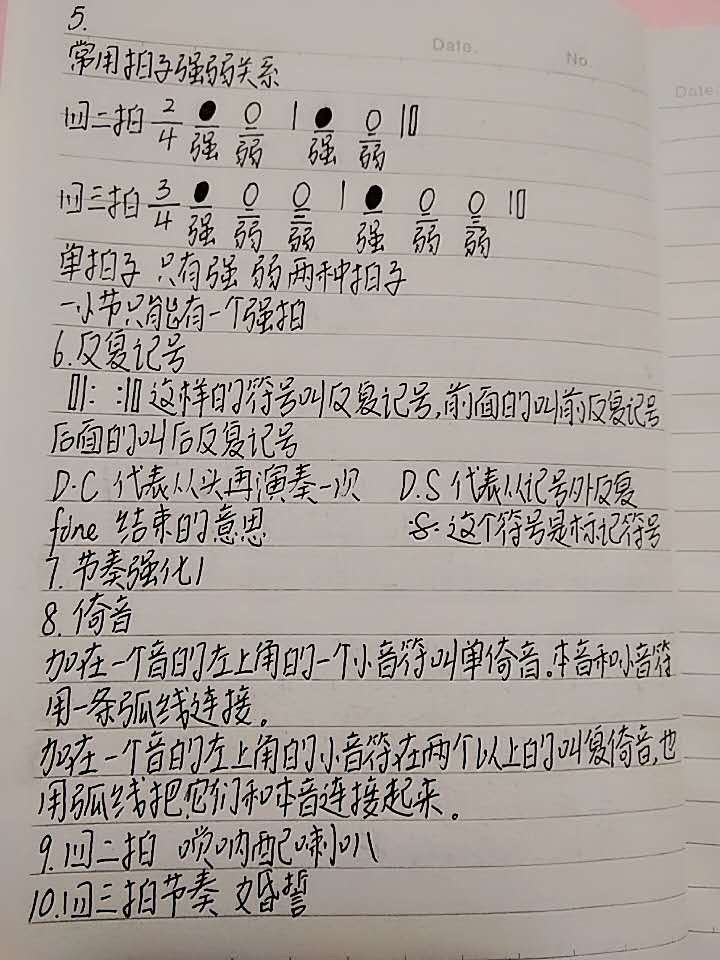 Date.
No
Date:
5.
常用拍子强弱关系
四二拍 2/4 ● ○ | ● ○ ‖
强 弱 强 弱
四三拍 3/4 ● ○ ○ | ● ○ ○ ‖
强 弱 弱 强 弱 弱
单拍子 只有强 弱两种拍子
一小节只能有一个强拍
6.反复记号
‖: :‖ 这样的符号叫反复记号,前面的叫前反复记号
后面的叫后反复记号
D.C 代表从头再演奏一次 D.S 代表从记号外反复
fine 结束的意思 :S: 这个符号是标记符号
7.节奏强化1
8.倚音
加在一个音的左上角的一个小音符叫单倚音。本音和小音符
用一条弧线连接。
加在一个音的左上角的小音符在两个以上的叫复倚音,也
用弧线把它们和本音连接起来。
9.四二拍 唢呐配喇叭
10.四三拍节奏 婚誓